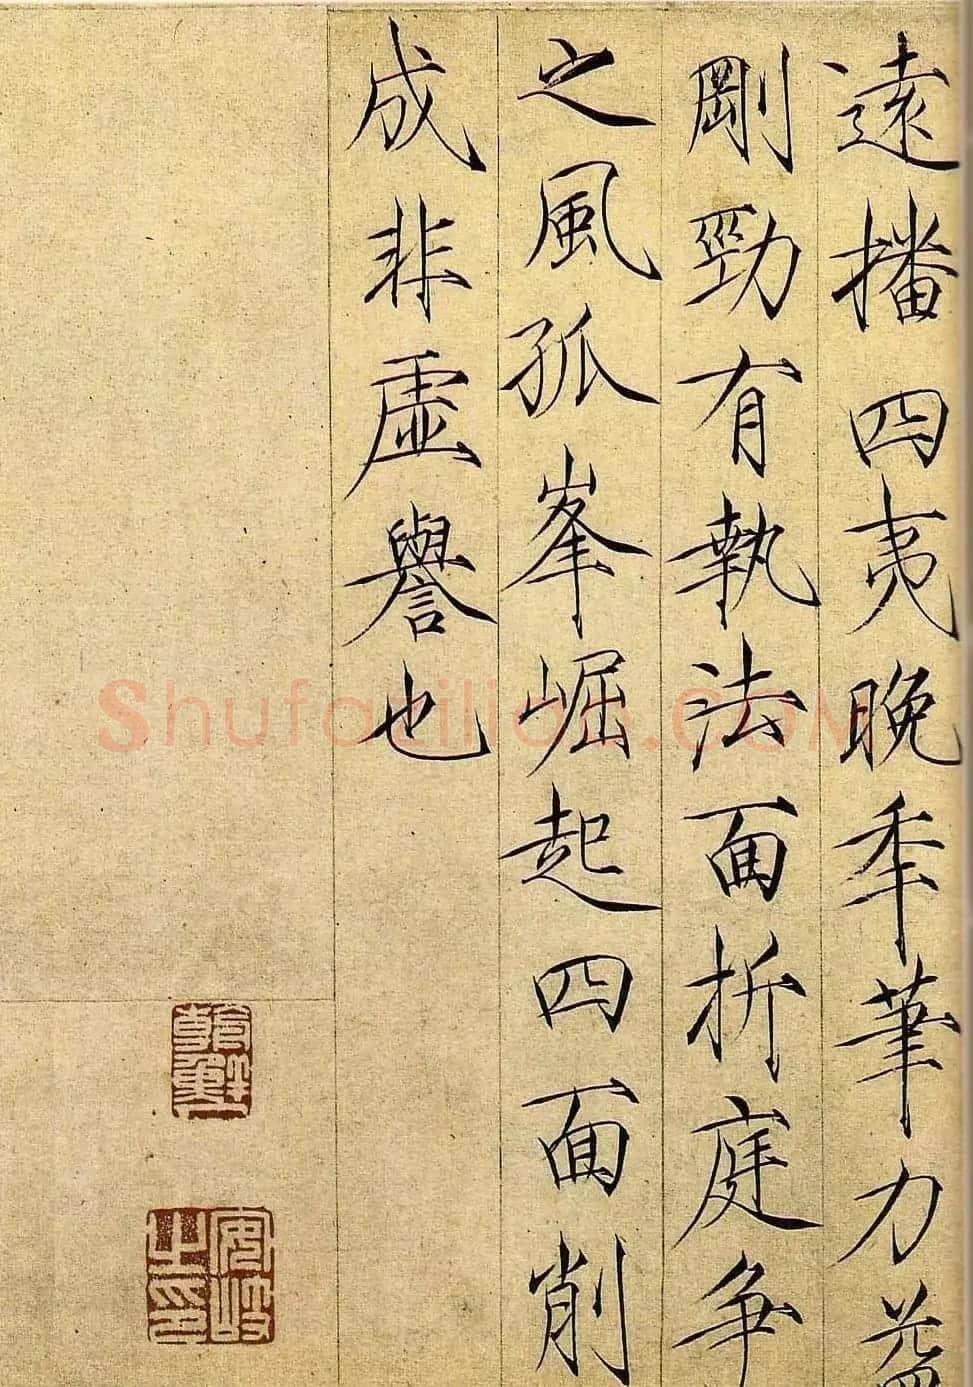 遠播四夷晚秊筆力益
剛勁有執法面折庭爭
之風孤峯崛起四面削
成非虛譽也
安岐之印
Shufaziliao.COM